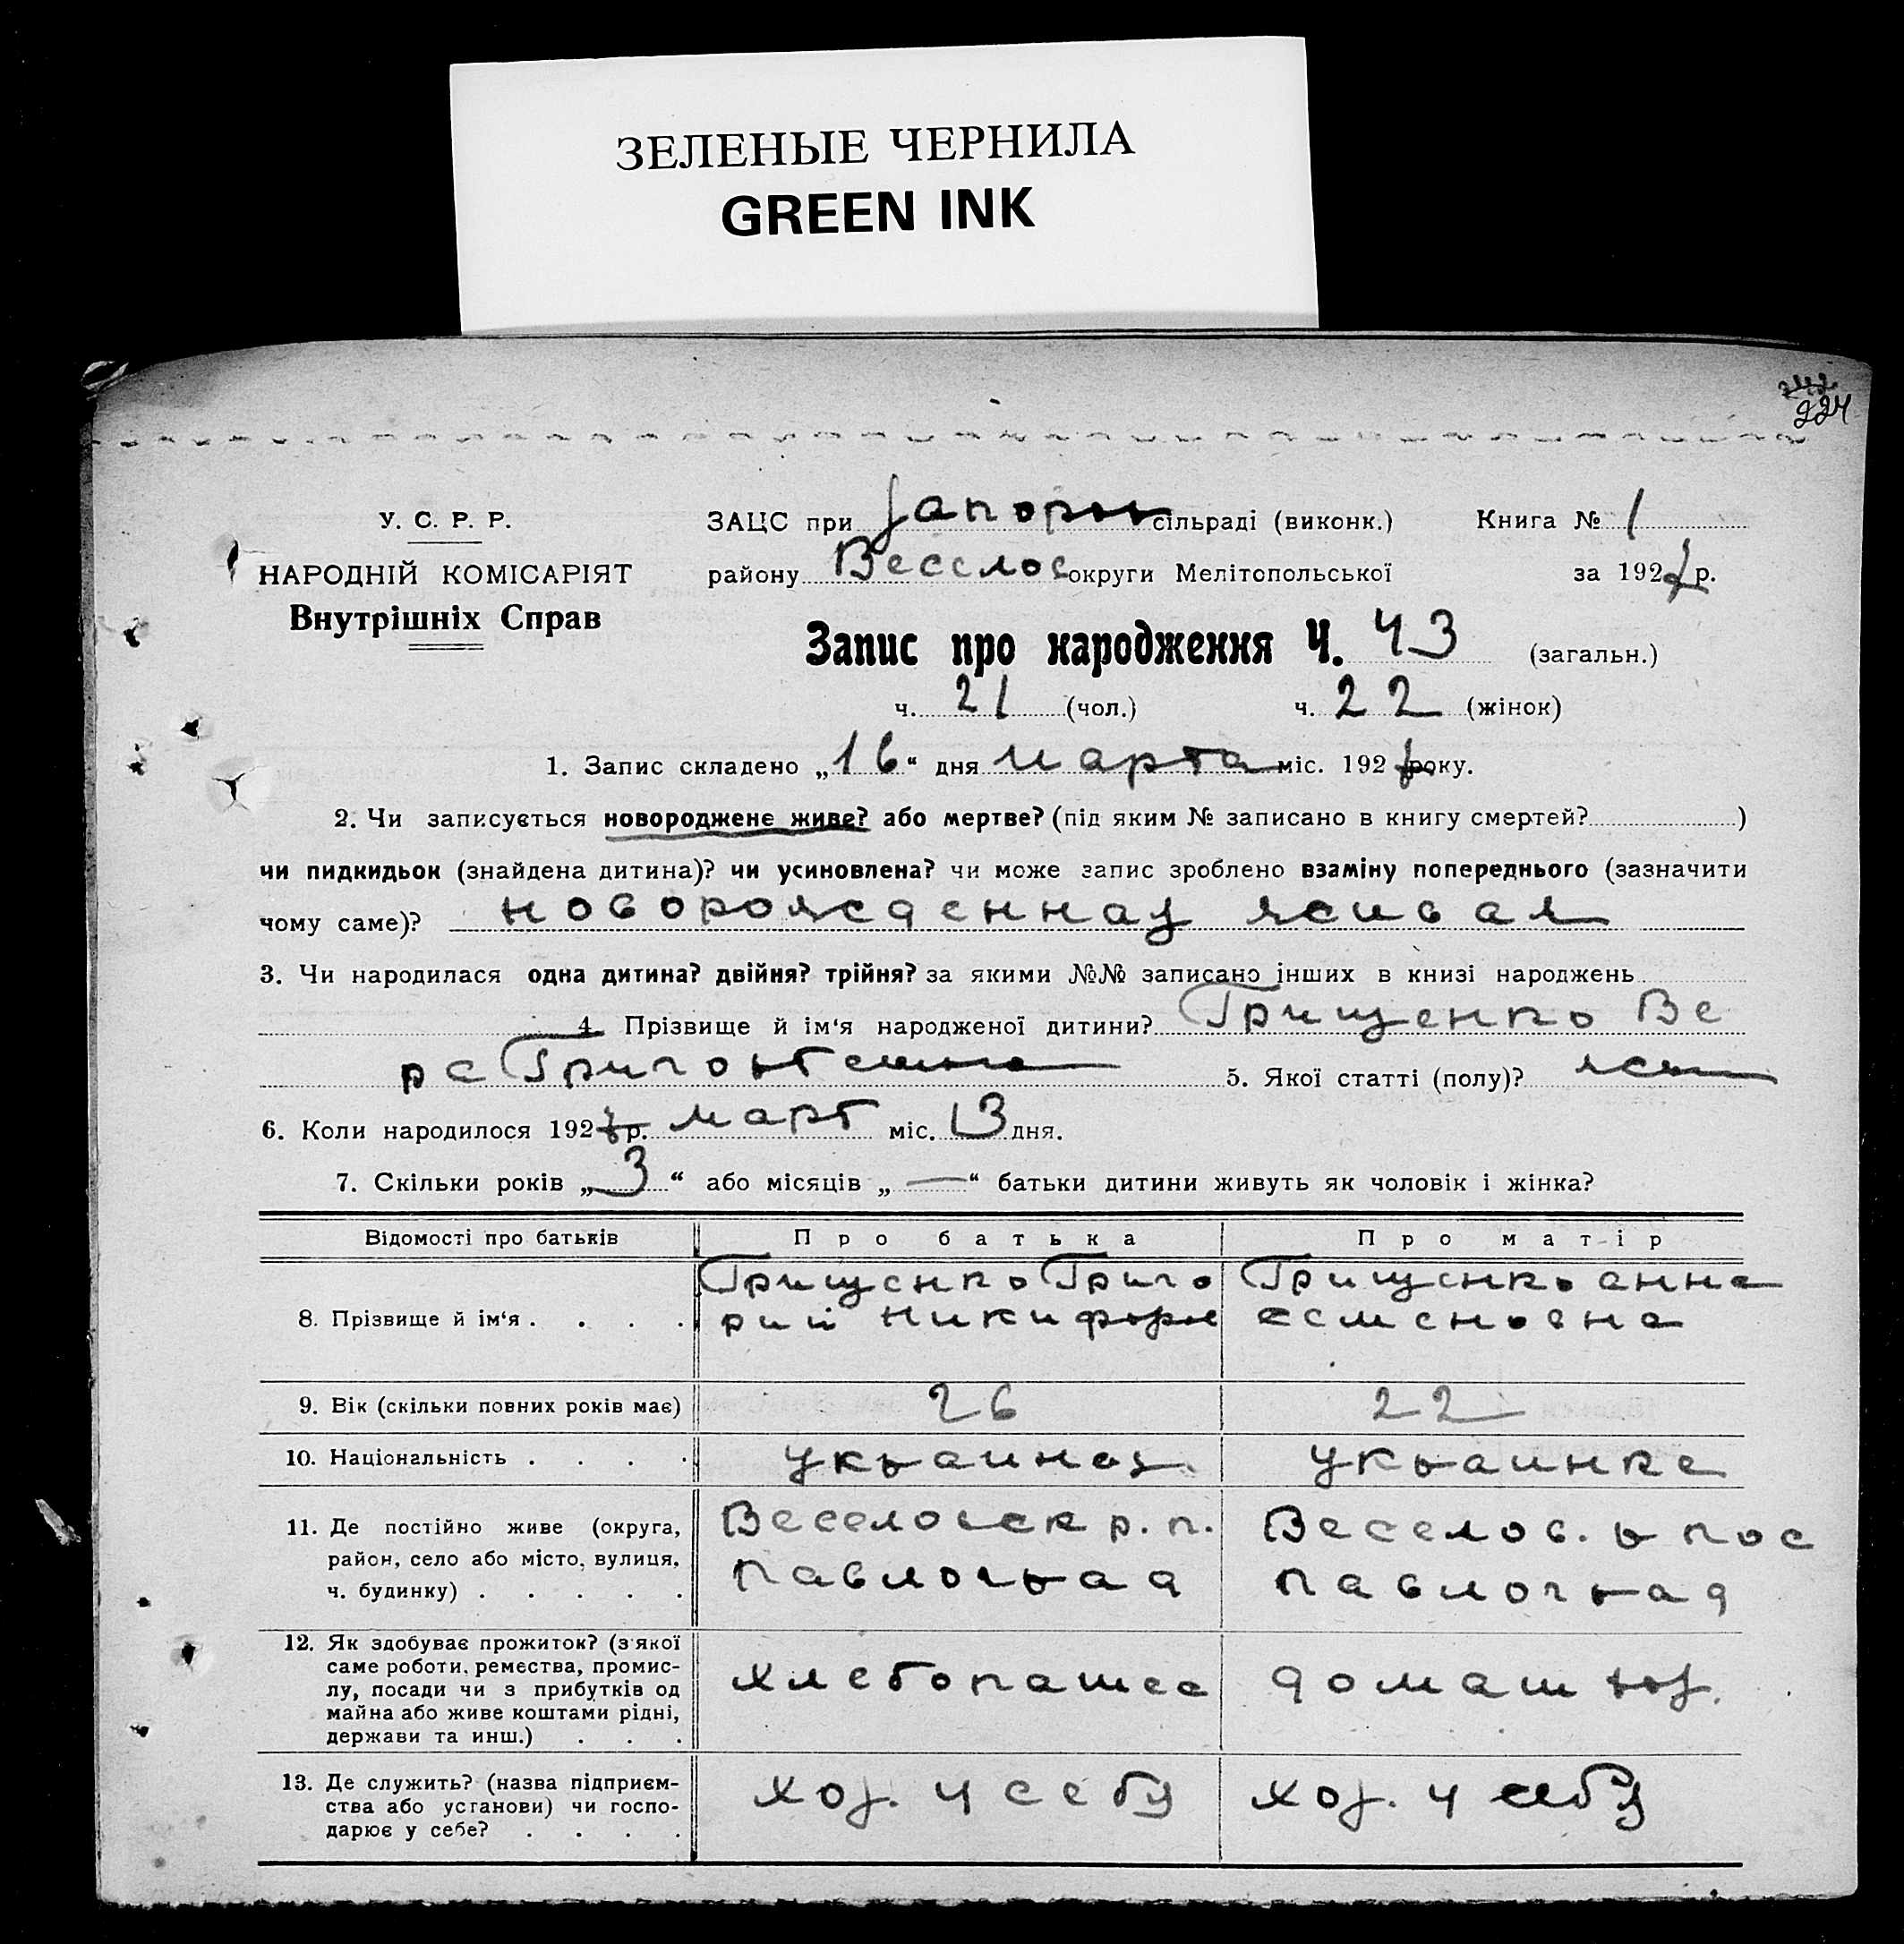 ЗЕЛЕНЫЕ ЧЕРНИЛА
GREEN INK
224
У. С. Р. Р.
НАРОДНІЙ КОМІСАРІЯТ
Внутрішніх Справ
ЗАЦС при Запорож сільраді (виконк.) Книга № 1
району Веселов округи Мелітопольської за 192 р.
Запис про народження Ч. 43 (загальн.)
ч. 21 (чол.) ч. 22 (жінок)
1. Запис складено „16“ дня марта міс. 192 року.
2. Чи записується новороджене живе? або мертве? (під яким № записано в книгу смертей? )
чи пидкидьок (знайдена дитина)? чи усиновлена? чи може запис зроблено взаміну попереднього (зазначити
чому саме)? новорожденная живая
3. Чи народилася одна дитина? двійня? трійня? за якими №№ записано інших в книзі народжень
4. Прізвище й ім‘я народженої дитини? Грищенко Ве
ра 5. Якої статті (полу)? жен
6. Коли народилося 192 р. март міс. 13 дня.
7. Скільки років „3“ або місяців „—“ батьки дитини живуть як чоловік і жінка?
Відомості про батьків Про батька Про матір
8. Прізвище й ім‘я . . . .
Грищенко Григо
рий Никифоров
Грищенко анна
семеновна
9. Вік (скільки повних років має) 26 22
10. Національність . . . . украинец украинка
11. Де постійно живе (округа,
район, село або місто, вулиця,
ч. будинку) . . . . .
Веселовск р. п.
павлоград
Веселов. р пос
павлоград
12. Як здобуває прожиток? (з‘якої
саме роботи, ремества, промис-
лу, посади чи з прибутків од
майна або живе коштами рідні,
держави та инш.) . . .
хлебопашес
домаш хоз.
13. Де служить? (назва підприєм-
ства або установи) чи госпо-
дарює у себе? . . . .
хоз. у себя
хоз. у себя